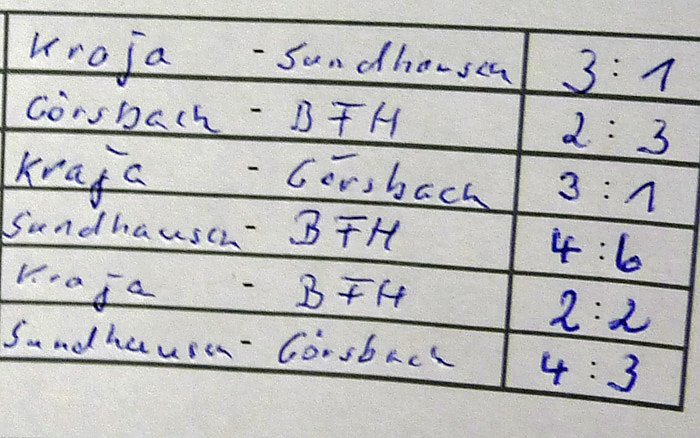 Kraja - Sundhausen 3:1
Görsbach - BFH 2:3
Kraja - Görsbach 3:1
Sundhausen - BFH 4:6
Kraja - BFH 2:2
Sundhausen - Görsbach 4:3